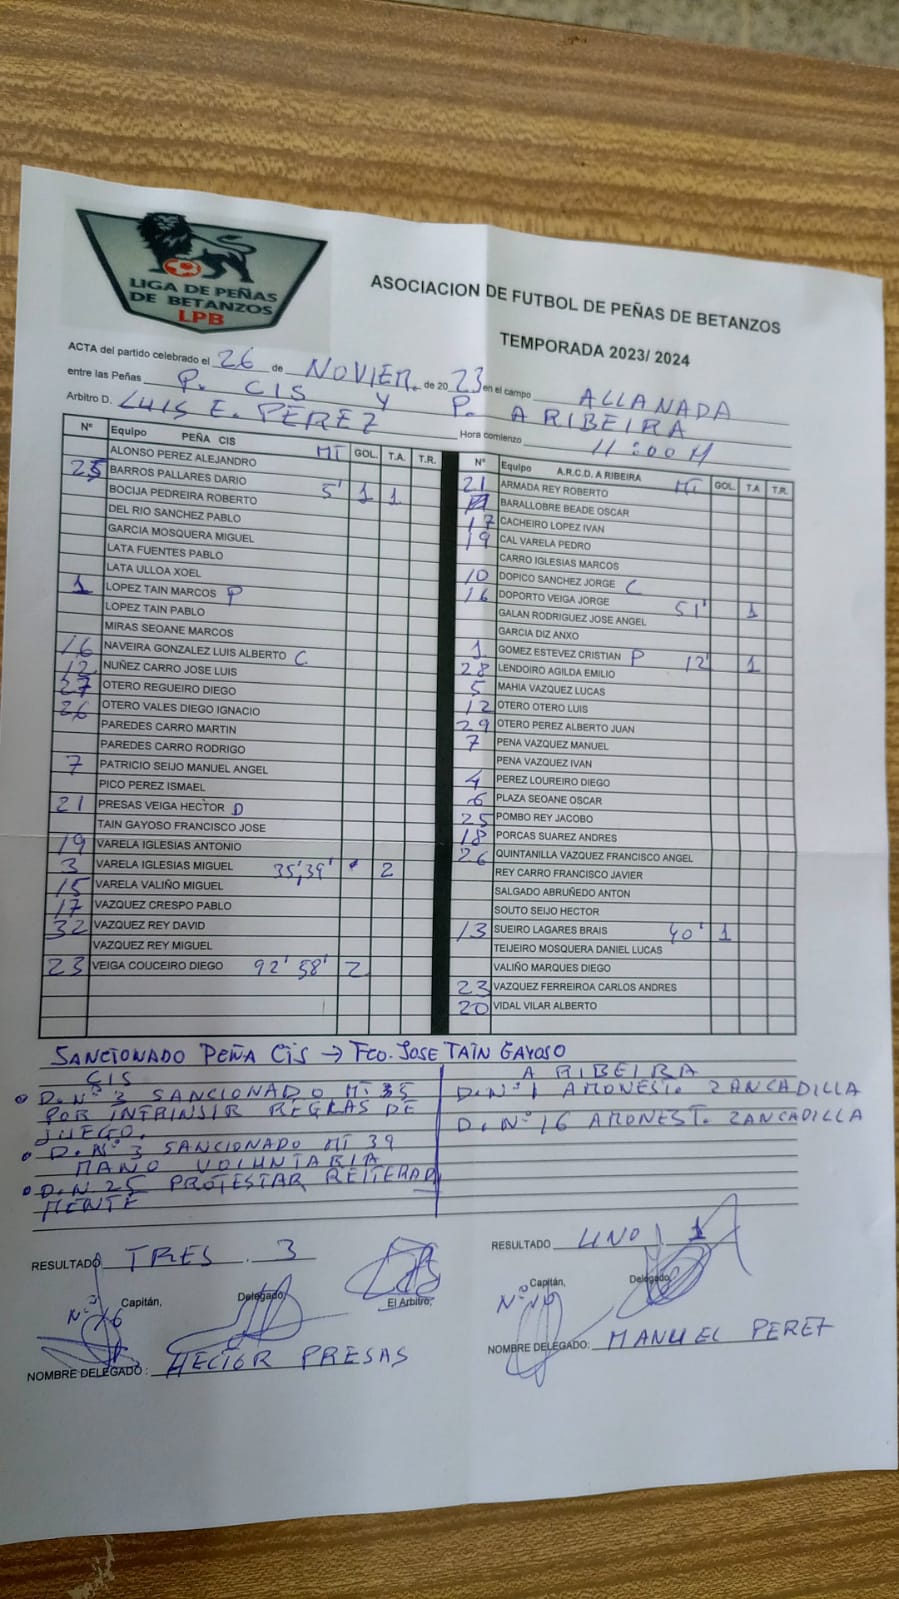 LIGA DE PEÑAS
DE BETANZOS
LPB
ASOCIACION DE FUTBOL DE PEÑAS DE BETANZOS
TEMPORADA 2023/ 2024
ACTA del partido celebrado el 26 de NOVIEM. de 2023 en el campo ALLANADA
entre las Peñas P. CIS y P. A RIBEIRA
Arbitro D. LUIS E. PEREZ Hora comienzo 11:00 H
Nº Equipo PEÑA CIS MT GOL. T.A. T.R.
ALONSO PEREZ ALEJANDRO
25 BARROS PALLARES DARIO 5' 1 1
BOCIJA PEDREIRA ROBERTO
DEL RIO SANCHEZ PABLO
GARCIA MOSQUERA MIGUEL
LATA FUENTES PABLO
LATA ULLOA XOEL
1 LOPEZ TAIN MARCOS P
LOPEZ TAIN PABLO
MIRAS SEOANE MARCOS
16 NAVEIRA GONZALEZ LUIS ALBERTO C
12 NUÑEZ CARRO JOSE LUIS
27 OTERO REGUEIRO DIEGO
26 OTERO VALES DIEGO IGNACIO
PAREDES CARRO MARTIN
PAREDES CARRO RODRIGO
7 PATRICIO SEIJO MANUEL ANGEL
PICO PEREZ ISMAEL
21 PRESAS VEIGA HECTOR D
TAIN GAYOSO FRANCISCO JOSE
19 VARELA IGLESIAS ANTONIO
3 VARELA IGLESIAS MIGUEL 35',39' 2
15 VARELA VALIÑO MIGUEL
17 VAZQUEZ CRESPO PABLO
32 VAZQUEZ REY DAVID
VAZQUEZ REY MIGUEL
23 VEIGA COUCEIRO DIEGO 92' 58' 2
Nº Equipo A.R.C.D. A RIBEIRA MT GOL. T.A T.R.
21 ARMADA REY ROBERTO
BARALLOBRE BEADE OSCAR
17 CACHEIRO LOPEZ IVAN
19 CAL VARELA PEDRO
CARRO IGLESIAS MARCOS
10 DOPICO SANCHEZ JORGE C
16 DOPORTO VEIGA JORGE 51' 1
GALAN RODRIGUEZ JOSE ANGEL
GARCIA DIZ ANXO
1 GOMEZ ESTEVEZ CRISTIAN P 12' 1
28 LENDOIRO AGILDA EMILIO
5 MAHIA VAZQUEZ LUCAS
12 OTERO OTERO LUIS
29 OTERO PEREZ ALBERTO JUAN
7 PENA VAZQUEZ MANUEL
PENA VAZQUEZ IVAN
4 PEREZ LOUREIRO DIEGO
6 PLAZA SEOANE OSCAR
25 POMBO REY JACOBO
18 PORCAS SUAREZ ANDRES
26 QUINTANILLA VAZQUEZ FRANCISCO ANGEL
REY CARRO FRANCISCO JAVIER
SALGADO ABRUÑEDO ANTON
SOUTO SEIJO HECTOR
13 SUEIRO LAGARES BRAIS 40' 1
TEIJEIRO MOSQUERA DANIEL LUCAS
VALIÑO MARQUES DIEGO
23 VAZQUEZ FERREIROA CARLOS ANDRES
20 VIDAL VILAR ALBERTO
SANCIONADO PEÑA CIS → FCO. JOSE TAIN GAYOSO
CIS
D. Nº 3 SANCIONADO MT 35
POR INTRINSIR REGLAS DE
JUEGO.
D. Nº 3 SANCIONADO MT 39
MANO VOLUNTARIA
D. N 25 PROTESTAR REITERAD
MENTE
A RIBEIRA
D. Nº 1 AMONEST. ZANCADILLA
D. Nº 16 AMONEST. ZANCADILLA
RESULTADO TRES . 3
RESULTADO UNO 1
Capitán, Delegado, El Arbitro,
Nº 16
Capitán, Delegado,
Nº 10
NOMBRE DELEGADO : HECTOR PRESAS
NOMBRE DELEGADO: MANUEL PEREZ